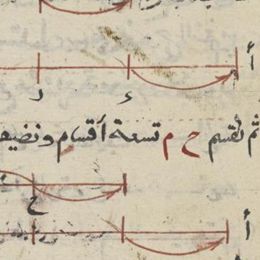 أ
ء
د
ثم نقسم ح م تسعة أقسام ونضيف
ح
أ